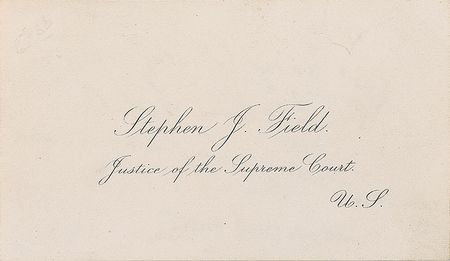 Stephen J. Field.
Justice of the Supreme Court.
U. S.